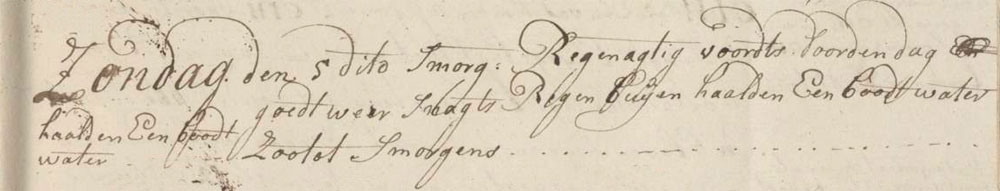 Zondag den 5 dito Smorg: Regenagtig voordts doorden dag
goedt weer Snagts Regen buijen haalden Een boodt water
haalden Een boodt
water Zootot Smorgens . . . . . . . . . . . . .